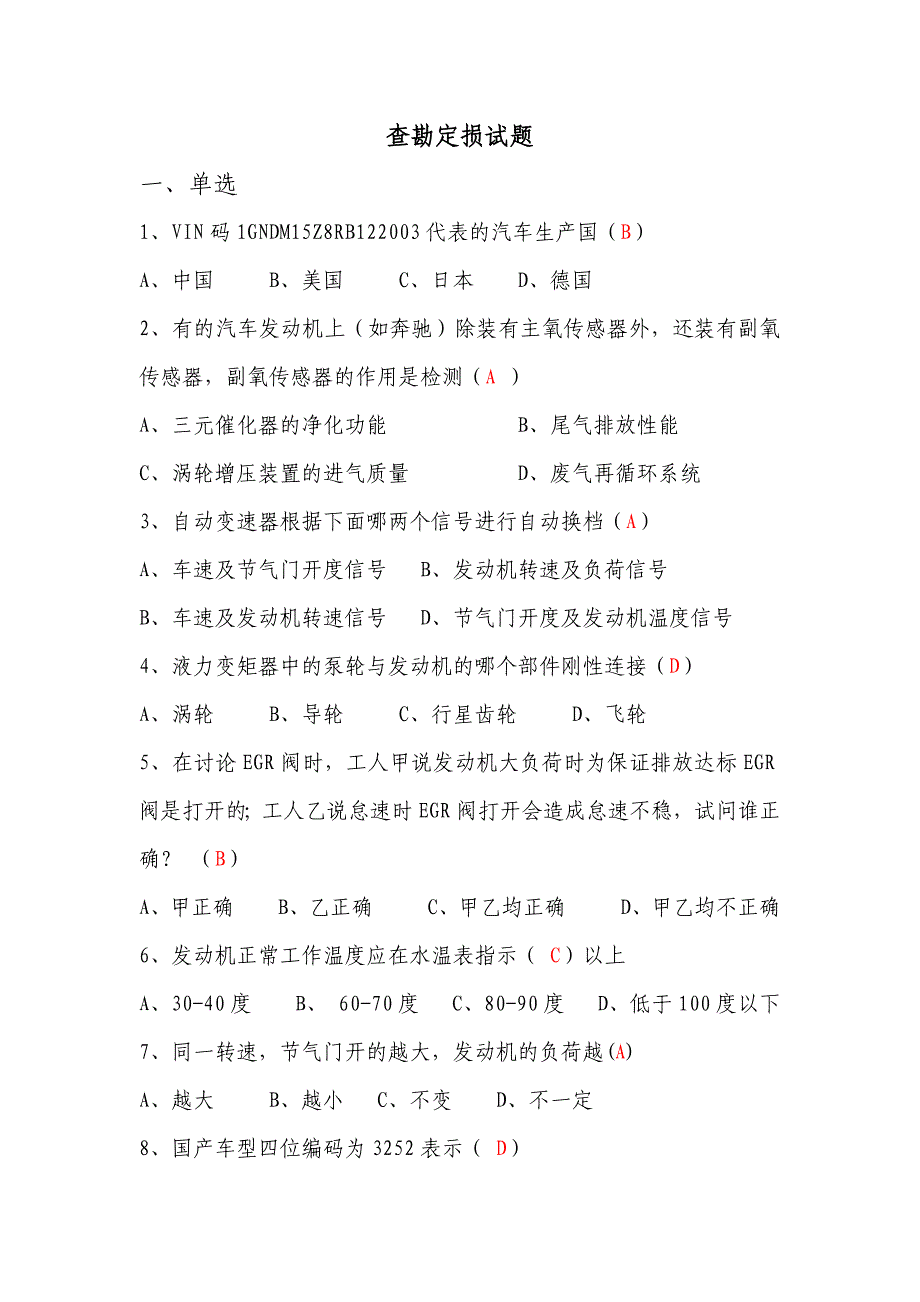 查勘定损试题
一、单选
1、VIN 码 1GNDM15Z8RB122003 代表的汽车生产国（B）
A、中国 B、美国 C、日本 D、德国
2、有的汽车发动机上（如奔驰）除装有主氧传感器外，还装有副氧
传感器，副氧传感器的作用是检测（A ）
A、三元催化器的净化功能 B、尾气排放性能
C、涡轮增压装置的进气质量 D、废气再循环系统
3、自动变速器根据下面哪两个信号进行自动换档（A）
A、车速及节气门开度信号 B、发动机转速及负荷信号
B、车速及发动机转速信号 D、节气门开度及发动机温度信号
4、液力变矩器中的泵轮与发动机的哪个部件刚性连接（D）
A、涡轮 B、导轮 C、行星齿轮 D、飞轮
5、在讨论 EGR 阀时，工人甲说发动机大负荷时为保证排放达标 EGR
阀是打开的；工人乙说怠速时 EGR 阀打开会造成怠速不稳，试问谁正
确？ （B）
A、甲正确 B、乙正确 C、甲乙均正确 D、甲乙均不正确
6、发动机正常工作温度应在水温表指示（ C）以上
A、30-40 度 B、 60-70 度 C、80-90 度 D、低于 100 度以下
7、同一转速，节气门开的越大，发动机的负荷越(A)
A、越大 B、越小 C、不变 D、不一定
8、国产车型四位编码为 3252 表示（ D）